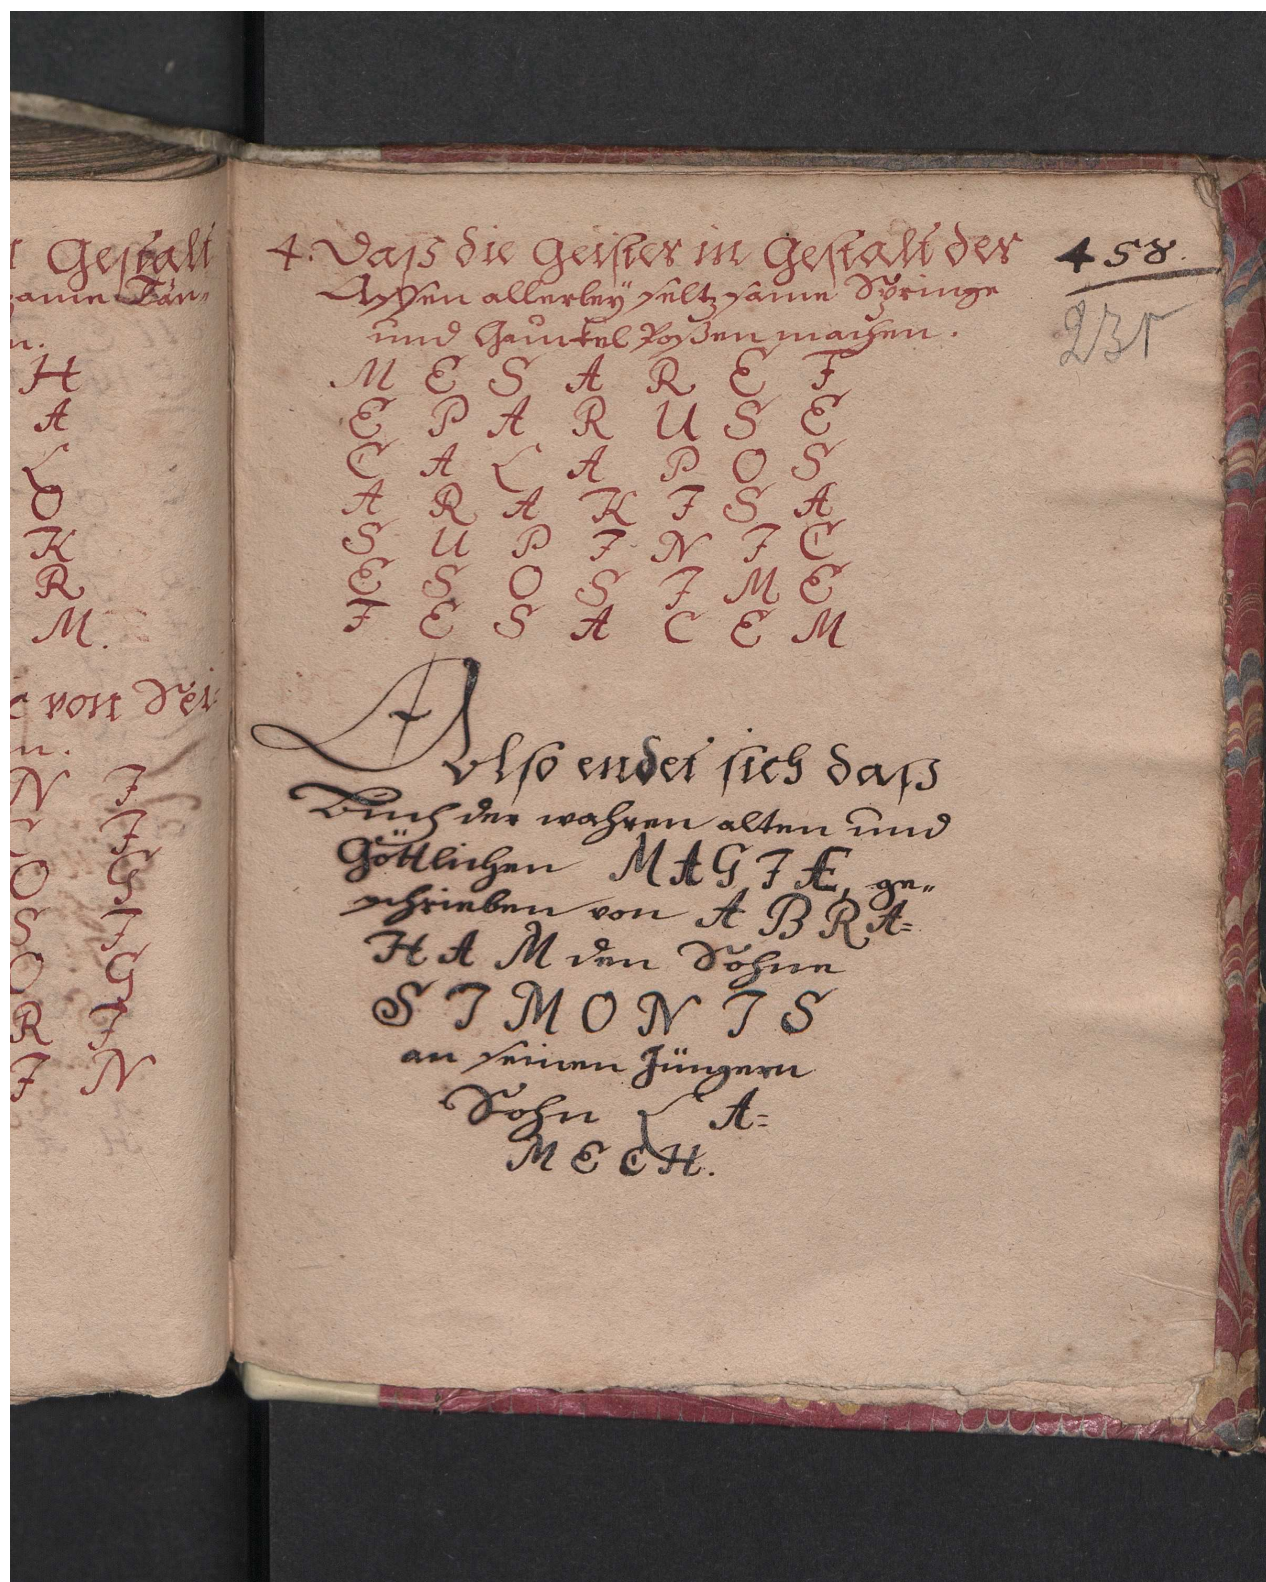 Gestalt
same Tän=
n.
H
A
L
O
K
R
M.
von Sei=
n.
N I
C I
O G
S I
O G
R I
I N
4. Daß die Geister in Gestalt der
Affen allerleÿ seltzsame Springe
und Gauckel Poßen machen.
M E S A R E F
E P A R U S E
C A L A P O S
A R A K I S A
S U P I N I C
E S O S I M E
F E S A C E M
Also endet sich daß
Buch der wahren alten und
Göttlichen MAGIÆ, ge=
schrieben von ABRA=
HAM den Sohne
SIMONIS
an seinen Jüngern
Sohn LA=
MECH.
458.
231